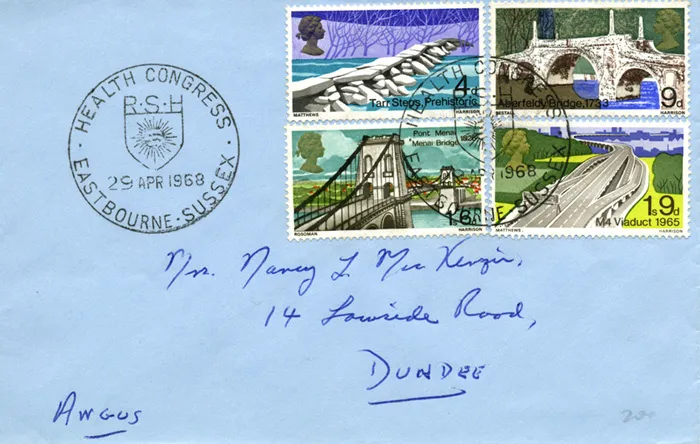 HEALTH CONGRESS
R.S.H
29 APR 1968
EASTBOURNE · SUSSEX
4d
Tarr Steps, Prehistoric
MATTHEWS HARRISON
9d
Aberfeldy Bridge, 1733
RESTALL HARRISON
Pont Menai 1826
Menai Bridge
1/6
ROSOMAN HARRISON
1s9d
M4 Viaduct 1965
MATTHEWS HARRISON
HEALTH CONGRESS
APR 1968
EASTBOURNE · SUSSEX
Mrs. Nancy L. MacKenzie,
14 Lawside Road,
DUNDEE
ANGUS